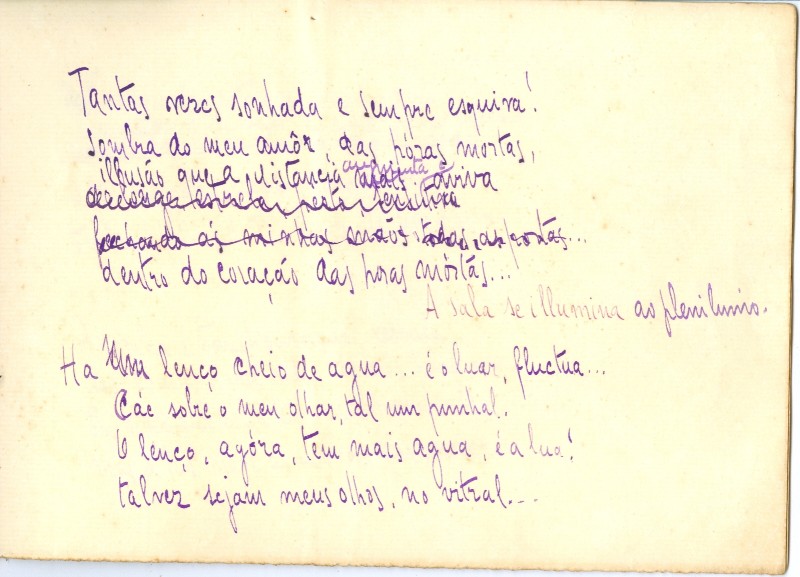 Tantas vezes sonhada e sempre esquiva!
Sombra do meu amôr, das hóras mortas,
augmenta e
illusão que a distancia mais aviva
de longe estrela, perto, sensitiva
fechando as minhas mãos todas as portas...
dentro do coração das horas mórtas...
A sala se illumina ao plenilunio.
Ha um lenço cheio de agua... é o luar, fluctua...
Cáe sobre o meu olhar, tal um punhal.
O lenço, agóra, tem mais agua, é a lua!
talvez sejam meus olhos, no vitral...